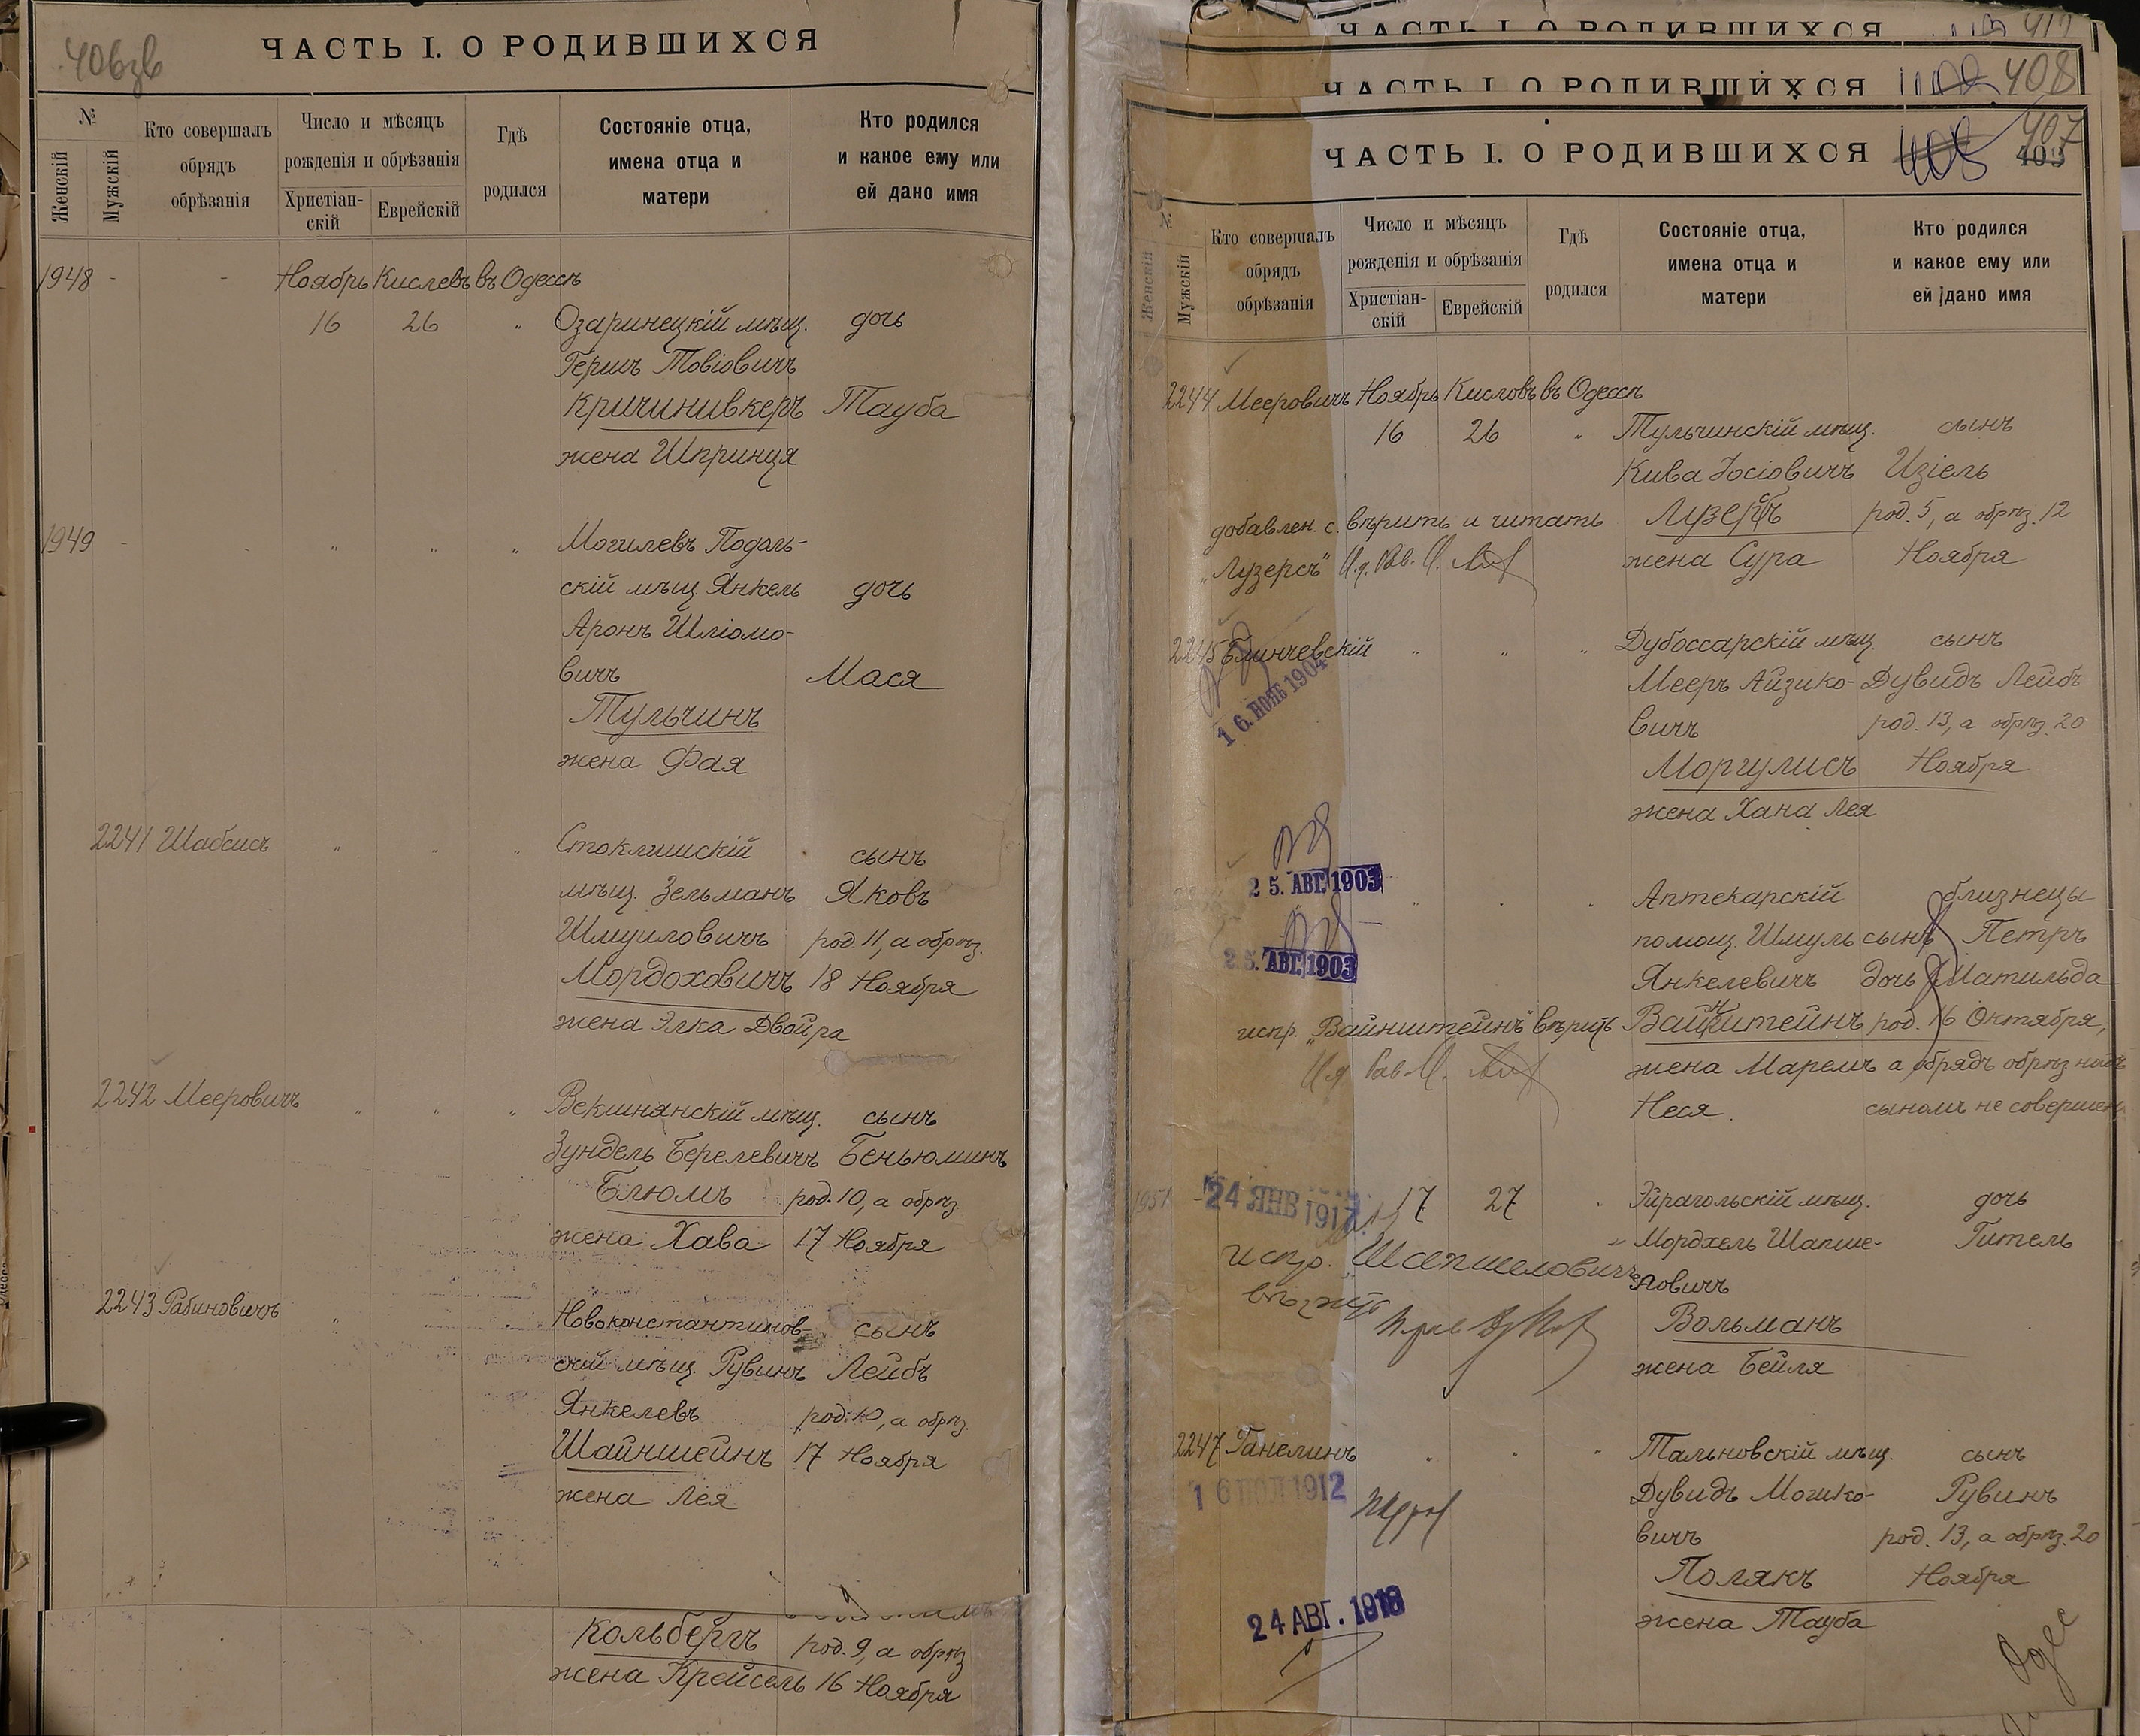 406зв
ЧАСТЬ I. О РОДИВШИХСЯ
№
Женскій
Мужскій
Кто совершалъ
обрядъ
обрѣзанія
Число и мѣсяцъ
рожденія и обрѣзанія
Христіан-
скій
Еврейскій
Гдѣ
родился
Состояніе отца,
имена отца и
матери
Кто родился
и какое ему или
ей дано имя
1948 - - Ноябрь Кислевъ въ Одессѣ
16 26 " Озаринецкій мѣщ. дочь
Гершъ Товіовичъ
Кричинивкеръ Тауба
жена Шпринця
1949 - - " " " Могилевъ Подоль-
скій мѣщ. Янкель дочь
Аронъ Шліомо-
вичъ Мася
Тульчинъ
жена Фая
2241 Шабсисъ " " " Стоклишскій сынъ
мѣщ. Зельманъ Яковъ
Шмуиловичъ род 11, а обрѣз.
Мордоховичъ 18 Ноября
жена Элка Двойра
2242 Мееровичъ " " " Векшнянскій мѣщ. сынъ
Зундель Берелевичъ Беньюминъ
Блюмъ род. 10, а обрѣз.
жена Хава 17 Ноября
2243 Рабиновичъ " " Новоконстантинов- сынъ
скій мѣщ. Рувинъ Лейбъ
Янкелевъ род. 10, а обрѣз.
Шайншейнъ 17 Ноября
жена Лея
Кольбергъ род. 9, а обрѣз
жена Крейсель 16 Ноября
ЧАСТЬ I. О РОДИВШИХСЯ 417
ЧАСТЬ I. О РОДИВШИХСЯ 408
407
ЧАСТЬ I. О РОДИВШИХСЯ 405 403
№
Женскій
Мужскій
Кто совершалъ
обрядъ
обрѣзанія
Число и мѣсяцъ
рожденія и обрѣзанія
Христіан-
скій
Еврейскій
Гдѣ
родился
Состояніе отца,
имена отца и
матери
Кто родился
и какое ему или
ей дано имя
2244 Мееровичъ Ноябрь Кисловъ въ Одессѣ
16 26 " Тульчинскій мѣщ. сынъ
Кива Іосіовичъ Изіель
добавлен. с. вѣрить и читать Лузерсъ род. 5, а обрѣз. 12
„Лузерсъ" И.д. Рав. жена Сура Ноября
2245 Блинчевскій " " " Дубоссарскій мѣщ. сынъ
16. НОЯБ 1904
Мееръ Айзико- Дувидъ Лейбъ
вичъ род. 13, а обрѣз. 20
Моргулисъ Ноября
жена Хана Лея
25. АВГ. 1903
Аптекарскій близнецы
помощ. Шмуль сынъ Петръ
25. АВГ. 1903
Янкелевичъ дочь Матильда
испр. „Вайнштейнъ" вѣрить Вайнштейнъ род. 16 Октября,
И.д. Рав. жена Маремъ а обрядъ обрѣз надъ
Неся. сыномъ не совершен
1951 - 24 ЯНВ 1917 17 27 " Эйрагольскій мѣщ. дочь
Мордхель Шапше- Гитель
испр. Шапшеловичъ ловичъ
вѣрить
Вольманъ
жена Бейля
2247 Ганелинъ " " " Тальновскій мѣщ. сынъ
1912
Дувидъ Мошко- Рувинъ
вичъ род. 13, а обрѣз. 20
Полякъ Ноября
24 АВГ. 1918
жена Тауба
Одес